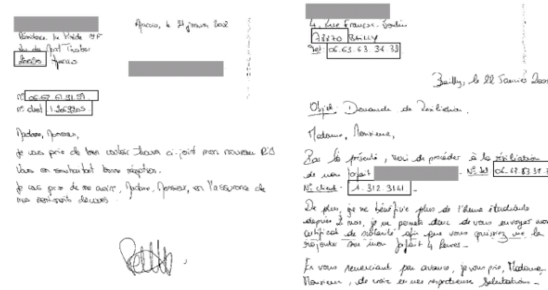 Ajaccio, le 21 janvier 2008
20000 Ajaccio
n° client
Madame, Monsieur,
je vous prie de bien vouloir trouver ci-joint mon nouveau RIB
Vous en souhaitant bonne réception.
Je vous prie de me croire, Madame, Monsieur, en l'assurance de
mes sentiments dévoués.
4, rue François
78870 BAILLY
Tel: 06.63.63.31.
Bailly, le 22 Janvier
Objet: Demande de résiliation
Madame, Monsieur,
Par la présente, merci de procéder à la résiliation
de mon forfait N° tel
N° client: 1.312.3141
De plus, je ne bénéficie plus de l'heure étudiante
depuis 2 mois, je me permets donc de vous envoyer mon
certificat de scolarité afin que vous puissiez me la
rajouter sur mon forfait 4 heures.
En vous remerciant par avance, je vous prie, Madame,
Monsieur, de croire en mes respectueuses Salutations.